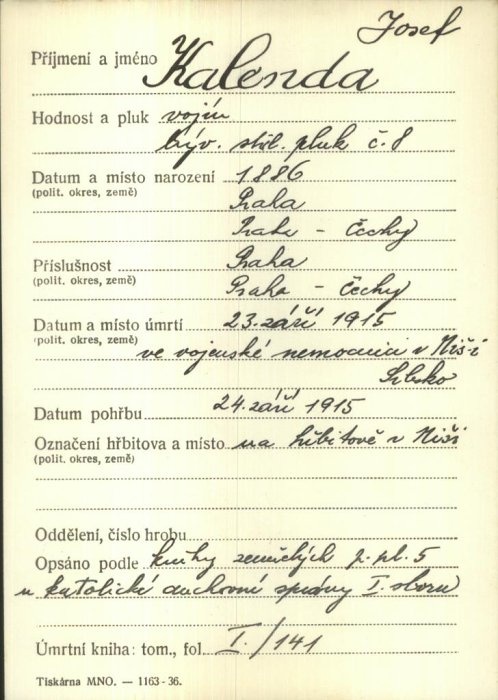 Josef
Příjmení a jméno Kalenda
Hodnost a pluk vojín
býv. střl. pluk č. 8
Datum a místo narození 1886
(polit. okres, země) Praha
Praha - Čechy
Příslušnost Praha
(polit. okres, země) Praha - Čechy
Datum a místo úmrtí 23. září 1915
(polit. okres, země) ve vojenské nemocnici v Niši
Srbsko
Datum pohřbu 24. září 1915
Označení hřbitova a místo na hřbitově v Niši
(polit. okres, země)
Oddělení, číslo hrobu
Opsáno podle knihy zemřelých p. pl. 5
u katolické duchovní správy I. sboru
Úmrtní kniha: tom., fol. I. / 141
Tiskárna MNO. — 1163-36.